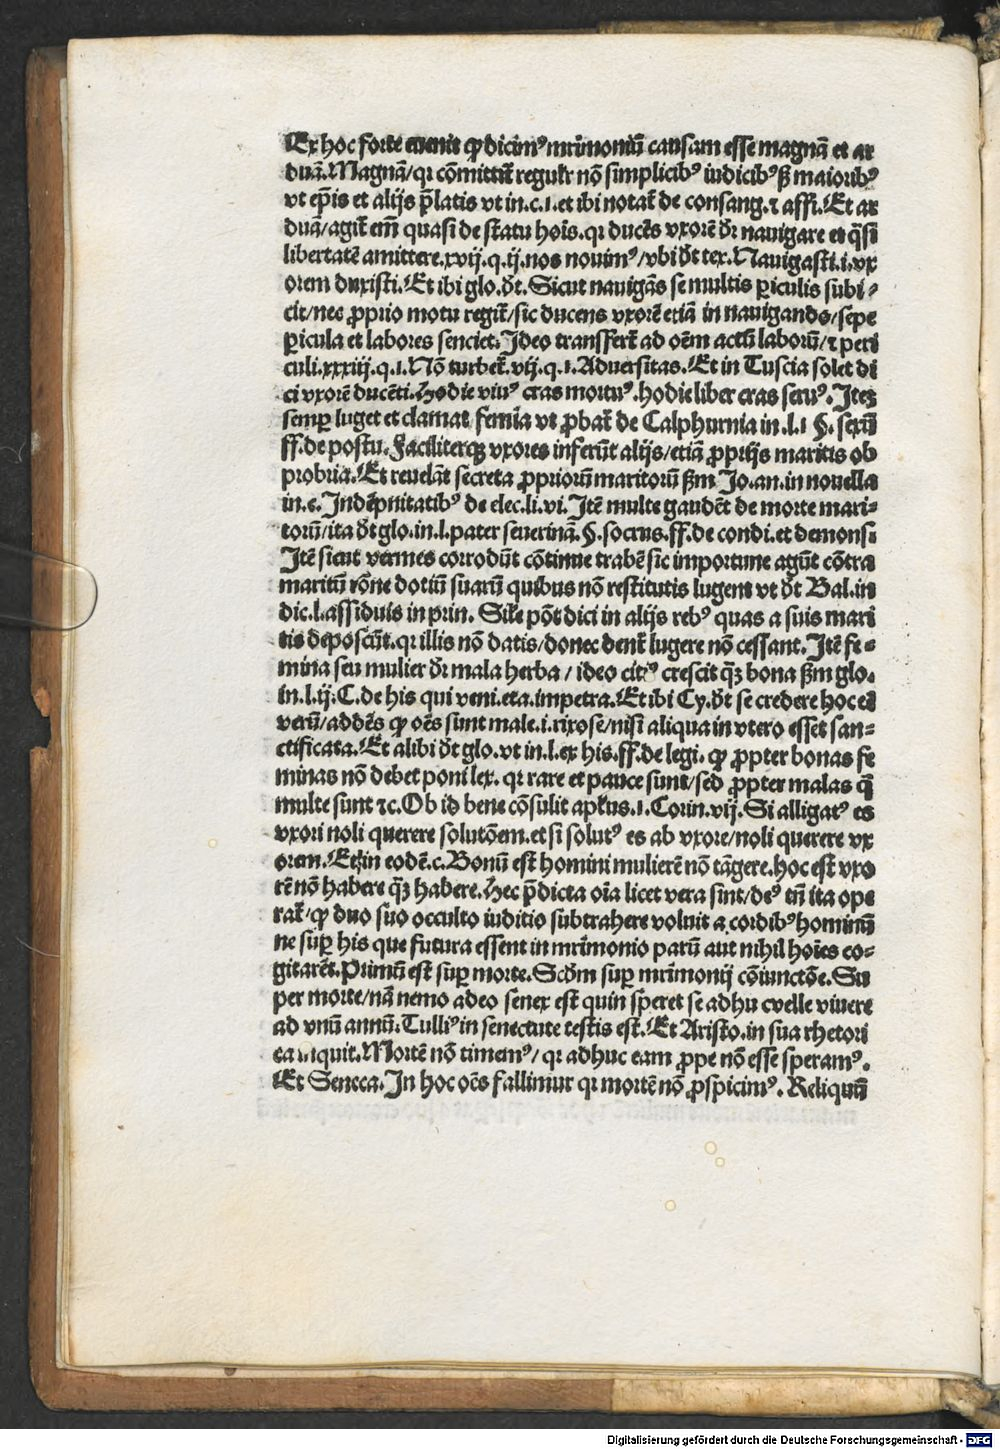 Ex hoc forte euenit ꝙ dicimꝰ mr̄imoniū causam esse magnā et ar
duā. Magnā/qꝛ cōmittit̄ regulr̄ nō simplicibꝰ iudicibꝰ ß maioribꝰ
vt ep̄is et alijs p̄latis vt in.c.i.et ibi notat̄ de consang.⁊ affi. Et ar
duā/agit̄ em̄ quasi de statu hoīs.qꝛ ducēs vxorē dr̄ nauigare et q̄si
libertatē amittere.xvij.q.ij.nos nouimꝰ/vbi dt̄ tex. Nauigasti.i.vx
orem duxisti. Et ibi glo.dt̄. Sicut nauigās se multis ꝑiculis subi⸗
cit/nec ꝓprio motu regit̄/sic ducens vxorē etiā in nauigando/sepe
ꝑicula et labores senciet. Ideo transfert̄ ad oēm actū laborū/⁊ peri
culi.xxxiij.q.i. Nō turbet̄.vij.q.i. Aduersitas. Et in Tuscia solet di
ci vxorē ducēti. Hodie viuꝰ cras mortuꝰ. hodie liber cras seruꝰ. Iteꝫ
semꝑ luget et clamat femīa vt ꝓbat̄ de Calphurnia in.l.i §. sexū
ff.de postu. Faciliterqꝫ vxores inferūt alijs/etiā ꝓprijs maritis ob
probria. Et reuelāt secreta ꝓpriorū maritorū ßm Jo.an.in nouella
in.c. Indēpnitatibꝰ de elec.li.vi. Itē multe gaudēt de morte mari⸗
torū/ita dt̄ glo.in.l.pater seuerinā.§.socrus.ff.de condi.et demonst
Itē sicut vermes corrodūt cōtinue trabē sic importune agūt cōtra
maritū rōne dotiū suarū quibus nō restitutis lugent vt dt̄ Bal.in
dic.l.assiduis in prin. Sil̄e pōt dici in alijs rebꝰ quas a suis mari
tis deposcūt.qꝛ illis nō datis/donec dent̄ lugere nō cessant. Itē fe⸗
mina seu mulier dr̄ mala herba/ideo citiꝰ crescit qꝫ bona ßm glo.
in.l.ij.C.de his qui veni.eta.impetra. Et ibi Cy.dt̄ se credere hoc eē
verū/addēs ꝙ oēs sunt male.i.rixose/nisi aliqua in vtero esset san⸗
ctificata. Et alibi dt̄ glo.vt in.l.ex his.ff.de legi. ꝙ ꝓpter bonas fe
minas nō debet poni lex. qꝛ rare et pauce sunt/sed ꝓpter malas q̄
multe sunt ⁊c. Ob id bene cōsulit apl̄us.i. Corin.vij. Si alligatꝰ es
vxori noli querere solutōem.et si solutꝰ es ab vxore/noli querere vx
orem. Et in eodē.c. Bonū est homini mulierē nō tāgere.hoc est vxo
rē nō habere qꝫ habere. Hec p̄dicta oīa licet vera sint/deꝰ tn̄ ita ope
rat̄/ꝙ duo suo occulto iuditio subtrahere voluit a cordibꝰ hominū
ne suꝑ his que futura essent in mr̄imonio parū aut nihil hoīes co⸗
gitarēt. Primū est suꝑ morte. Scd̄m suꝑ mr̄imonij cōiunctōe. Su
per morte/nā nemo adeo senex est quin speret se adhu cvelle viuere
ad vnū annū. Tulliꝰ in senectute testis est. Et Aristo.in sua rhetori
ca inquit. Mortē nō timemꝰ/qꝛ adhuc eam ꝓpe nō esse speramꝰ.
Et Seneca. In hoc oēs fallimur qꝛ mortē nō ꝓspicimꝰ. Reliquū
Digitalisierung gefördert durch die Deutsche Forschungsgemeinschaft - DFG